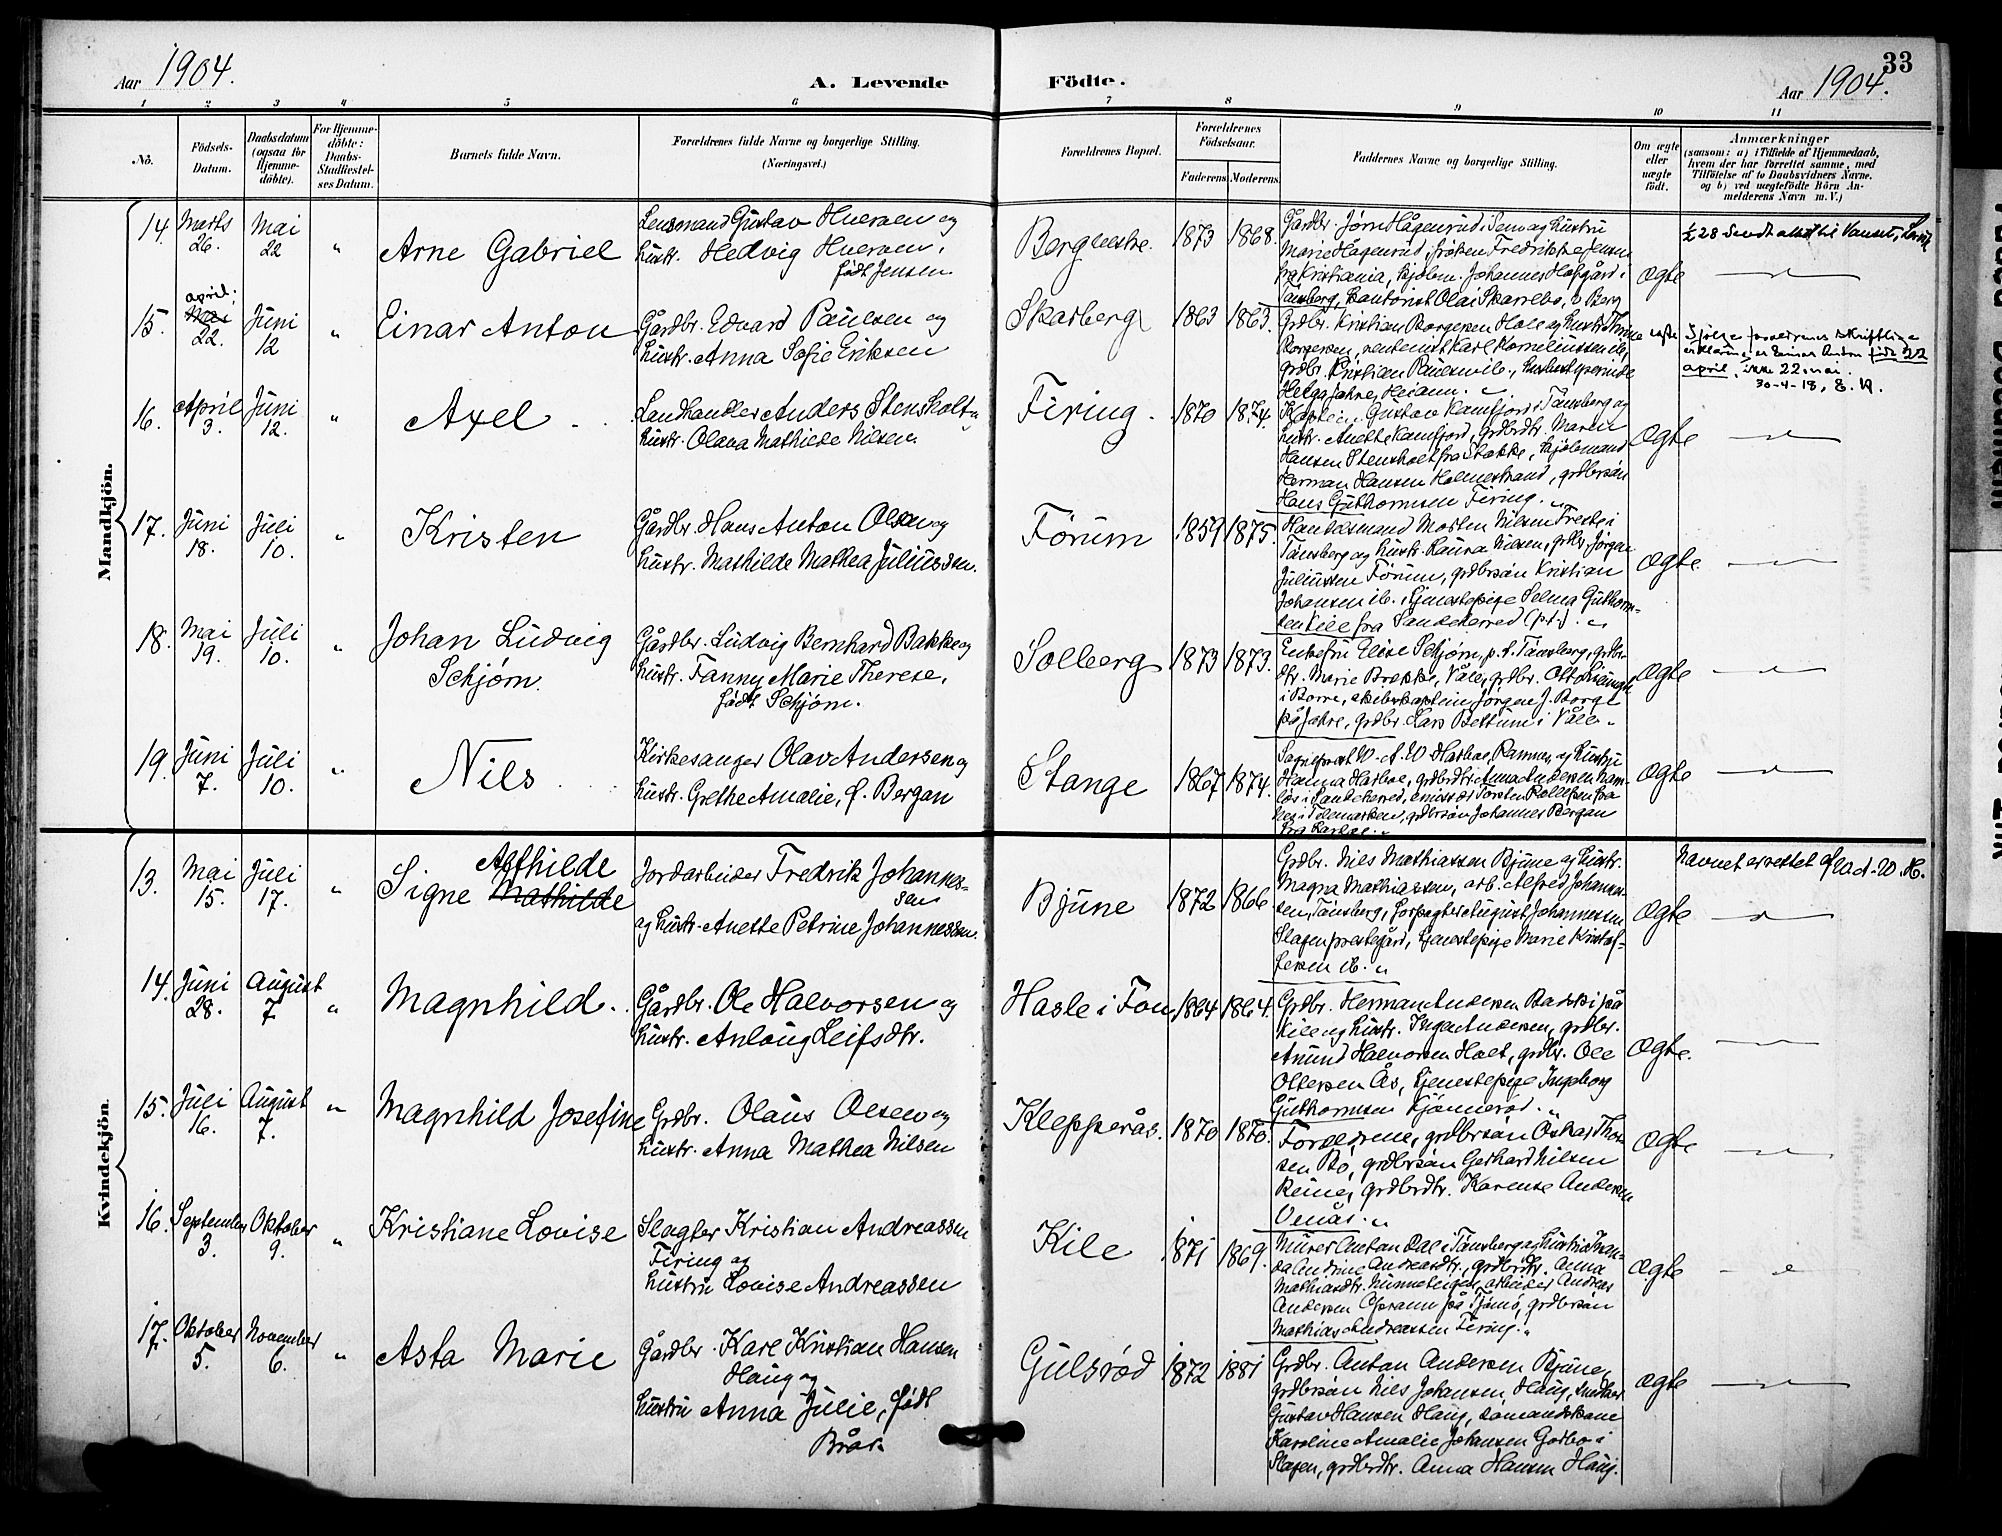 33
Aar 1904.
A. Levende
Fødte.
Aar 1904.
1 2 3 4 5 6 7 8 9 10 11
No.
Fødsels-
Datum.
Daabsdatum
(ogsaa for
Hjemme-
døbte).
For Hjemme-
døbte:
Daabs-
Stadfæstel-
ses Datum.
Barnets fulde Navn.
Forældrenes fulde Navne og borgerlige Stilling.
(Næringsvei.)
Forældrenes Bopæl.
Forældrenes
Fødselsaar.
Faderens
Moderens
Faddernes Navne og borgerlige Stilling.
Om ægte
eller
uægte
født.
Anmærkninger
(saasom: a) i Tilfælde af Hjemmedaab,
hvem der har forrettet samme, med
Tilføielse af to Daabsvidners Navne,
og b) ved uægtefødte Børn An-
melderens Navn m. V.)
Mandkjön.
14.
Marts
26.
Mai
22
"
Arne Gabriel
Lensmand Gustav Hverven og
hustr. Hedvig Hverven,
født Jensen
Bergneste.
1873
1868.
Gårdbr. Jørn Hågenrud i Sem og hustru
Marie Hagenrud, frøken Fredrikke Jensen
fra Kristiania, kjøbm. Johannes Hofgård i
Tønsberg, kantorist Olai Skarrebo, v Berg
ægte
15.
april.
Mai
22.
Juni
12
"
Einar Anton
Gårdbr. Edvard Paulsen og
hustr. Anna Sofie Eriksen
Skarberg
1863
1863.
Grdbr. Kristian Borgersen Hole og hustr. Thrine
Borgersen, rentenist Karl Korneliussen ib.,
grdbr. Kristian Paulsen ib.,
Helga Jahre, Heiann. "
ægte
Ifølge forældrenes skriftlige
erklæring er Einar Anton født 22
april, ikke 22 mai.
30-4-18, E. K.
16.
April
3.
Juni
12.
"
Axel
Landhandler Anders Stensholt og
hustr. Olava Mathilde Nilsen.
Firing.
1870
1874.
Gustav Kamfjord i Tønsberg og
hustr. Anette Kamfjord, grdbrdtr. Maren
Hansen Stensholt fra Stokke, kjøbmand
Herman Hansen Holmestrand, grdbrsøn
Hans Guthormsen Firing. "
ægte
17.
Juni
18.
Juli
10.
"
Kristen
Gårdbr. Hans Anton Olsen og
hustr. Mathilde Mathea Juliussen.
Førum
1859
1875.
Handelsmand Morten Nilsen Freste i
Tønsberg og hustr. Laura Nilsen, grdbr. Jørgen
Juliussen Førum, grdbrsøn Kristian
Johansen ib., tjenestepige Selma Guthorm-
sen Kile fra Sandeherred (p.t.). "
ægte
18.
Mai
19.
Juli
10.
"
Johan Ludvig
Schjørn.
Gårdbr. Ludvig Bernhard Bakke og
hustr. Fanny Marie Therese,
født Schjørn.
Solberg
1873
1873.
Enkefru Elise Schjørn, p.t. Tønsberg, grdbr-
dtr. Marie Brekke, Våle, grdbr. Olt
i Borre, skibskaptein Jørgen J. Borge
på Jahre, grdbr. Lars Bettum i Våle "
ægte
19.
Juni
7.
Juli
10.
"
Nils
Kirkesanger Olav Andersen og
hustr. Grethe Amalie, f. Bergan
Stange
1867
1874.
Sogneprest W. A. W. Harboe, Ramnes, og hustru
Hanna Harboe, grdbrdtr. Anna Andersen
i Sandeherred, emissær Torsten Rollefsen fra
Nes i Telemarken, grdbrsøn Johannes Bergan
ægte
Kvindekjön.
13.
Mai
15.
Juli
17.
"
Alfhilde
Signe Mathilde
Jordarbeider Fredrik Johannes-
sen
og hustr. Anette Petrine Johannessen.
Bjune
1872
1866
Grdbr. Nils Mathiassen Bjune og hustr.
Magna Mathiassen, arb. Alfred Johannes-
sen, Tønsberg, forpagter August Johannessen
Slagen prestegård, tjenestepige Marie Kristof-
fersen ib. "
ægte
Navnet er rettet af
14.
Juni
28.
August
7.
"
Magnhild.
Gårdbr. Ole Halvorsen og
hustr. Anlaug Leifsdtr.
Hasle i Fon
1864
1864.
Grdbr. Herman Andersen Batski på
Kile og hustr. Inga Andersen, grdbr.
Amund Halvorsen Holt, grdbr. Ole
Ottersen Ås, tjenestepige Ingeborg
Guthormsen Kjønnerød. "
Ægte.
15.
Juli
16.
August
7.
"
Magnhild Josefine
Grdbr. Olaus Olsen og
hustr. Anna Mathea Nilsen
Klepperås.
1870
1870.
Forældrene, grdbrsøn Oskar Thor-
sen Bø, grdbrsøn Gerhard Nilsen
Reine, grdbrdtr. Karense Andersen
Venås. "
ægte
16.
September
3.
Oktober
9.
"
Kristiane Lovise
Slagter Kristian Andreassen
Firing og
hustru Lovise Andreassen
Kile
1871
1869.
Murer Anton Dal i Tønsberg og hustru
Andrine Andreasdtr., grdbrdtr. Anna
Mathiasdtr. arbeider Andreas
Andersen på Tjømø, grdbrsøn
Mathias Andreassen Firing. "
ægte
17.
Oktober
5.
November
6.
"
Asta Marie
Gårdbr. Karl Kristian Hansen
Haug og
hustru Anna Julie, født
Brår.
Gulsrød
1872
1881
Grdbr. Anton Andersen Bjune,
grdbrsøn Nils Johansen Haug, snedker
Gustav Hansen Haug, sømandskone
Karoline Amalie Johansen Godbo i
Slagen, grdbrdtr. Anna Hansen Haug.
ægte